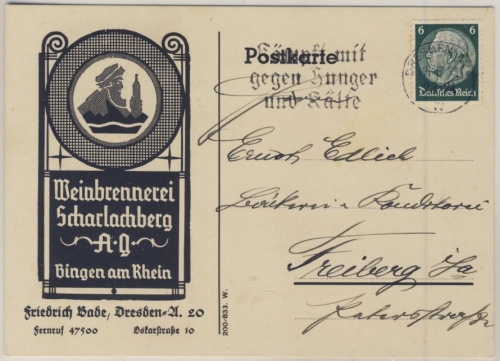 Weinbrennerei
Scharlachberg
A·G
Bingen am Rhein
Friedrich Bade, Dresden-A. 20
Fernruf 47500 Oskarstraße 10
200-833. W.
Postkarte
Kämpft mit
gegen Hunger
und Kälte
6 6
Deutsches Reich
DRESDEN
Ernst Edlich
Bäckerei u. Konditorei
Freiberg i/Sa
Petersstraße